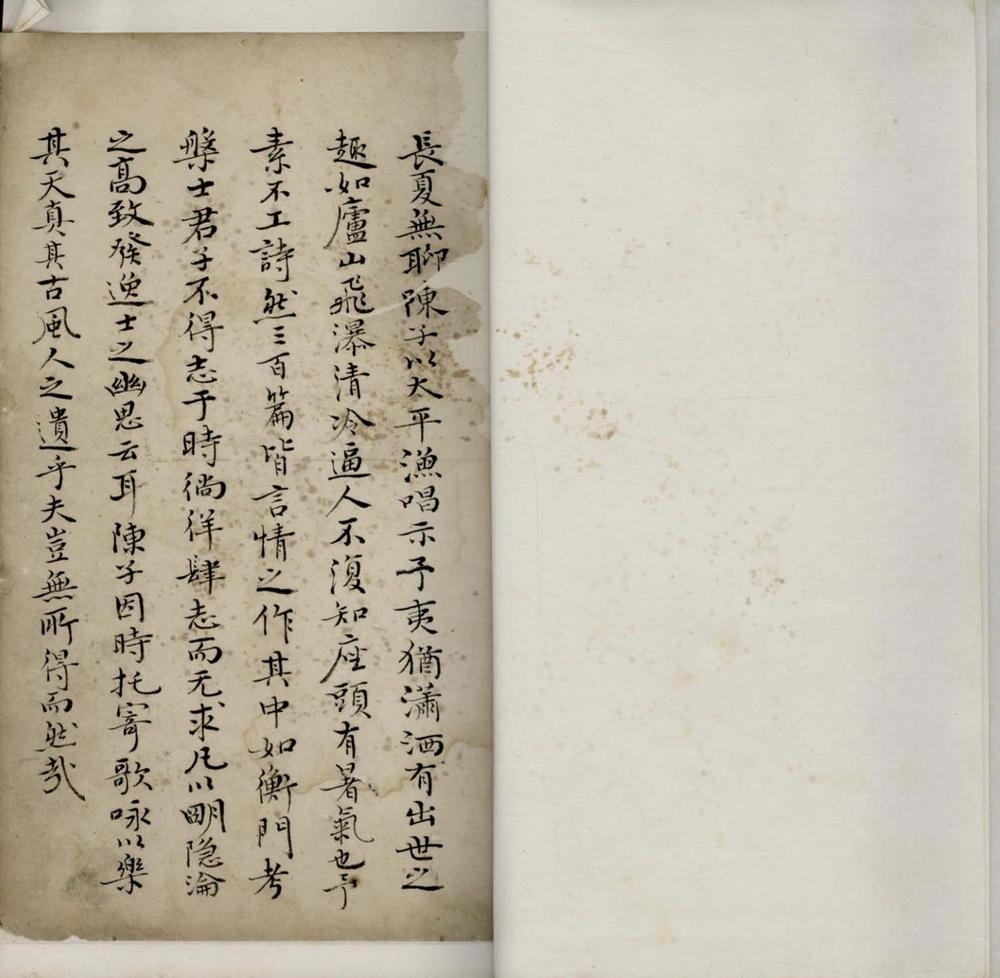 長夏無聊陳子以大平漁唱示予夷猶瀟洒有出世之
趣如廬山飛瀑清冷逼人不復知座頭有暑氣也予
素不工詩然三百篇皆言情之作其中如衡門考
槃士君子不得志于時徜徉肆志而无求凡以明隐淪
之高致發逸士之幽思云耳陳子因時托寄歌咏以樂
其天真其古風人之遺乎夫豈無所得而然哉